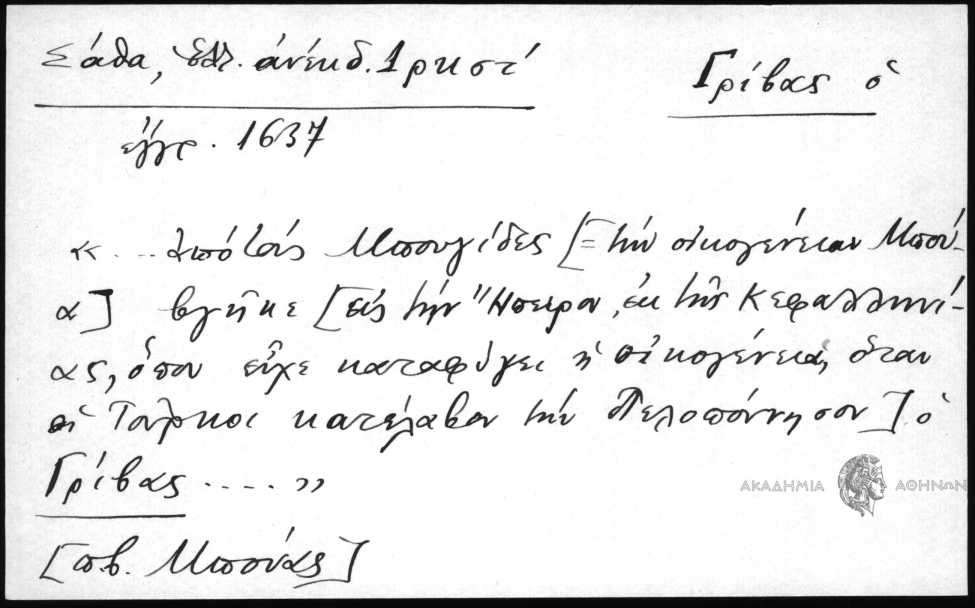 Σάθα, Ἑλλ. ἀνέκδ. 1 ρκστ΄
Γρίβας ὁ
ἔγγρ. 1637
« .... ἀπό τούς Μπουγίδες [= τήν οἰκογένειαν Μπού-
α] βγῆκε [εἰς τήν Ἤπειρον, ἐκ τῆς Κεφαλληνί-
ας, ὅπου εἶχε καταφύγει ἡ οἰκογένεια, ὅταν
οἱ Τοῦρκοι κατέλαβον τήν Πελοπόννησον] ὁ
Γρίβας .... »
ΑΚΑΔΗΜΙΑ ΑΘΗΝΩΝ
[πβ. Μπούας]